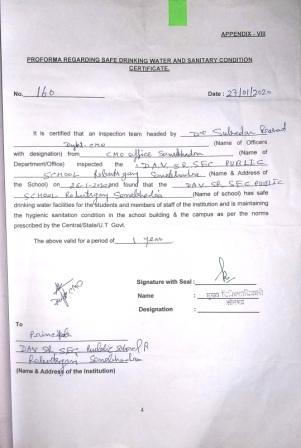 APPENDIX - VIII
PROFORMA REGARDING SAFE DRINKING WATER AND SANITARY CONDITION
CERTIFICATE.
No. 160 Date : 27/01/2020
It is certified that an inspection team headed by Dr. Subedar Prasad
Dypt. CMO (Name of Officers
with designation) from CMO office Sonebhadra (Name of
Department/Office) inspected the D.A.V. SR. SEC PUBLIC
SCHOOL Robertsganj Sonebhadra (Name & Address of
the School) on 26-1-2020 and found that the DAV. SR. SEC. PUBLIC
SCHOOL Robertsganj Sonebhadra (Name of school) has safe
drinking water facilities for the students and members of staff of the institution and is maintaining
the hygienic sanitation condition in the school building & the campus as per the norms
prescribed by the Central/State/U.T Govt.
The above valid for a period of 1 year
Dypt CMO
Signature with Seal :
Name : मुख्य चिकित्साधिकारी
सोनभद्र
Designation :
To
Principal
DAV SR. SEC. Public School R
Robertsganj Sonebhadra
(Name & Address of the Institution)
4